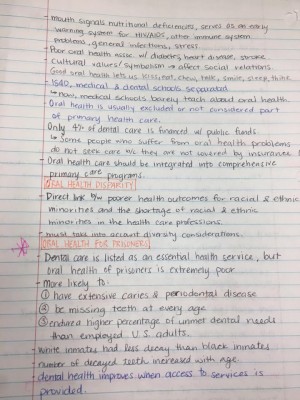 - mouth signals nutritional deficiencies, serves as an early
warning system for HIV/AIDS, other immune system
problems, general infections, stress
- Poor oral health assoc. w/ diabetes, heart disease, stroke
- cultural values/symbolism → affect social relations
- Good oral health lets us kiss, eat, chew, talk, smile, sleep, think
- 1840, medical & dental schools separated
↳ now, medical schools barely teach about oral health.
- Oral health is usually excluded or not considered part
of primary health care.
- Only 4% of dental care is financed w/ public funds
↳ some people who suffer from oral health problems
do not seek care b/c they are not covered by insurance
- Oral health care should be integrated into comprehensive
primary care programs.
ORAL HEALTH DISPARITY
- Direct link b/w poorer health outcomes for racial & ethnic
minorities and the shortage of racial & ethnic
minorities in the health care professions.
- must take into account diversity considerations.
ORAL HEALTH FOR PRISONERS
- Dental care is listed as an essential health service, but
oral health of prisoners is extremely poor
- More likely to:
① have extensive caries & periodontal disease
② be missing teeth at every age
③ endured higher percentage of unmet dental needs
than employed U.S. adults.
- White inmates had less decay than black inmates
- number of decayed teeth increased with age.
- dental health improves when access to services is
provided.